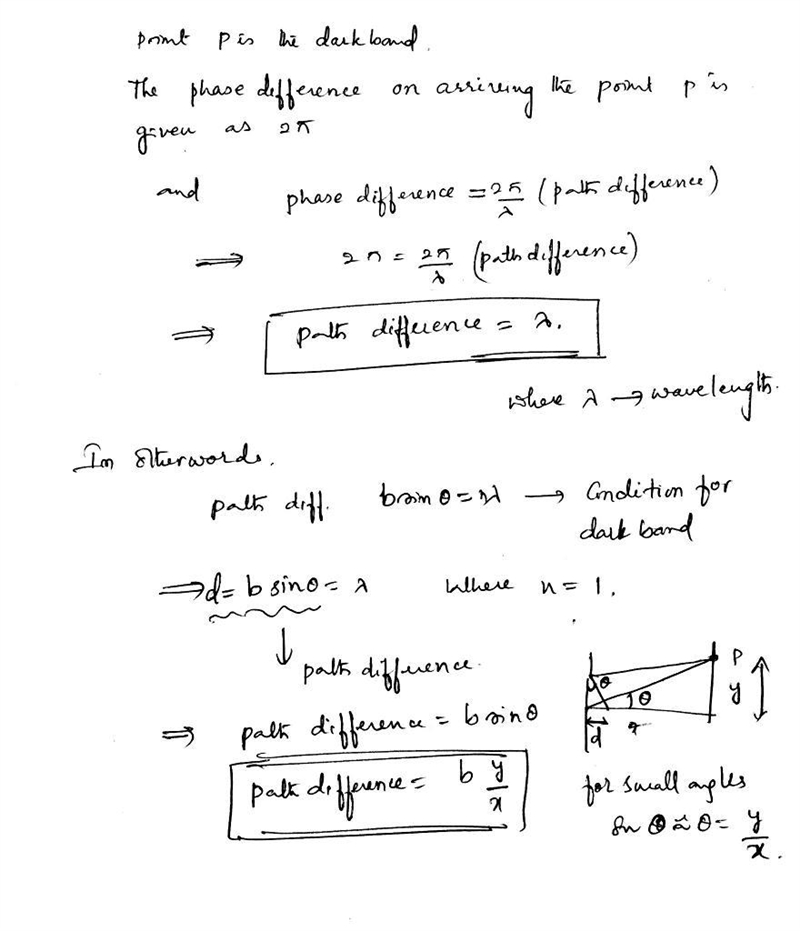 point P is the dark band.
The phase difference on arriving the point P is
given as 2π
and phase difference = 2π/λ (path difference)
⟹ 2π = 2π/λ (path difference)
⟹ path difference = λ.
where λ → wavelength.
In otherwords,
path diff. b sin θ = nλ → Condition for
dark band
⟹ d = b sinθ = λ where n = 1.
↓
path difference.
P
θ
θ
y
d
x
⟹ path difference = b sinθ
path difference = b y/x
for small angles
Sin θ ≈ θ = y/x.